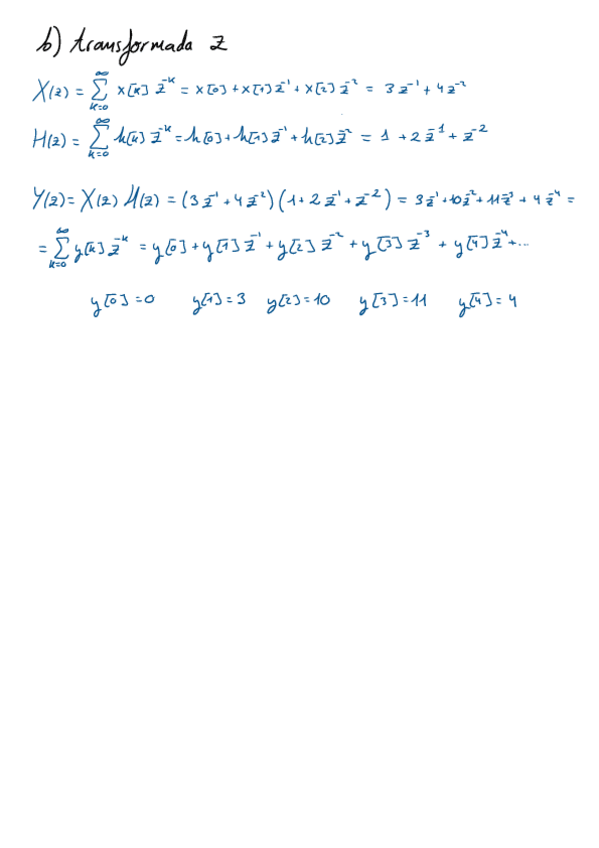 b) transformada Z
X(z) = ∞∑k=0 x[k] z^-k = x[0] + x[1] z^-1 + x[2] z^-2 = 3 z^-1 + 4 z^-2
H(z) = ∞∑k=0 h[k] z^-k = h[0] + h[1] z^-1 + h[2] z^-2 = 1 + 2 z^-1 + z^-2
Y(z) = X(z) H(z) = (3 z^-1 + 4 z^-2) (1 + 2 z^-1 + z^-2) = 3 z^-1 + 10 z^-2 + 11 z^-3 + 4 z^-4 =
= ∞∑k=0 y[k] z^-k = y[0] + y[1] z^-1 + y[2] z^-2 + y[3] z^-3 + y[4] z^-4 + ...
y[0] = 0 y[1] = 3 y[2] = 10 y[3] = 11 y[4] = 4